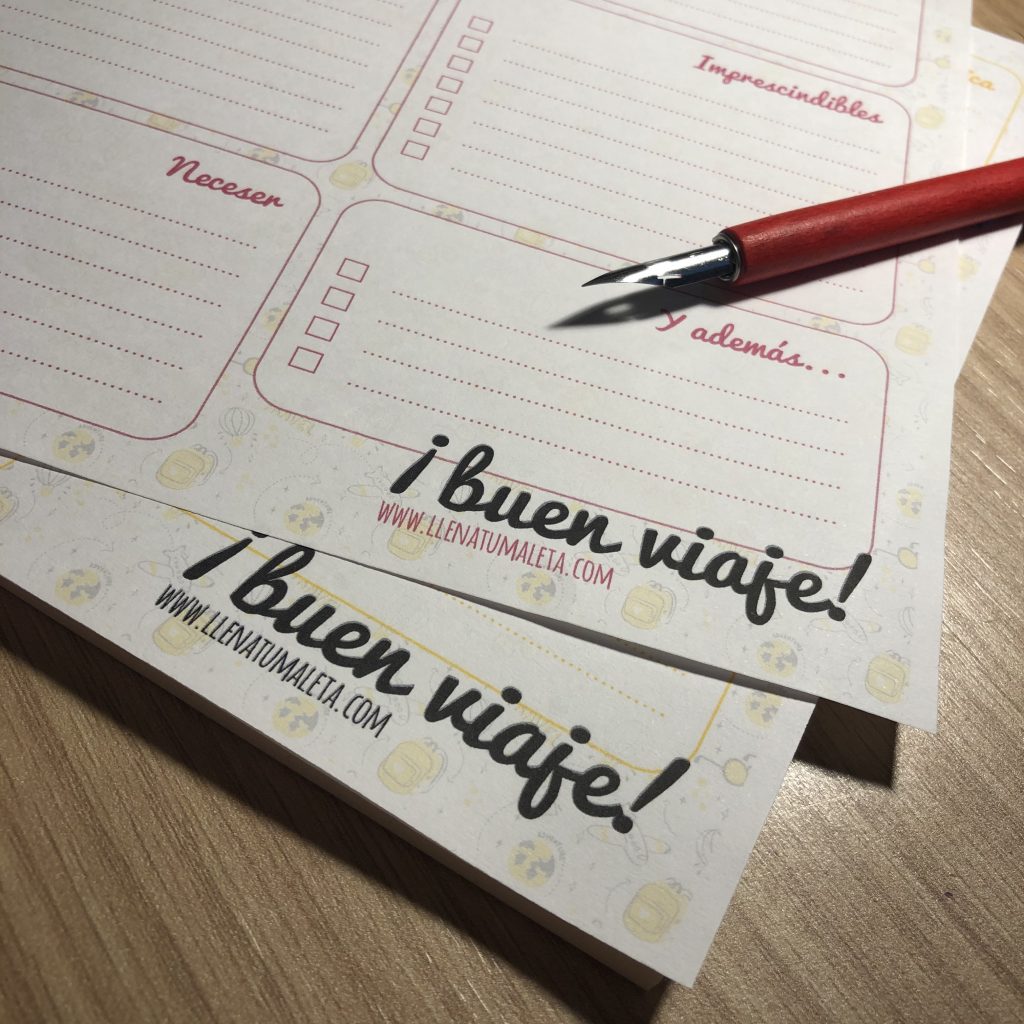 Imprescindibles
Neceser
Y además...
¡buen viaje!
WWW.LLENATUMALETA.COM
¡buen viaje!
WWW.LLENATUMALETA.COM